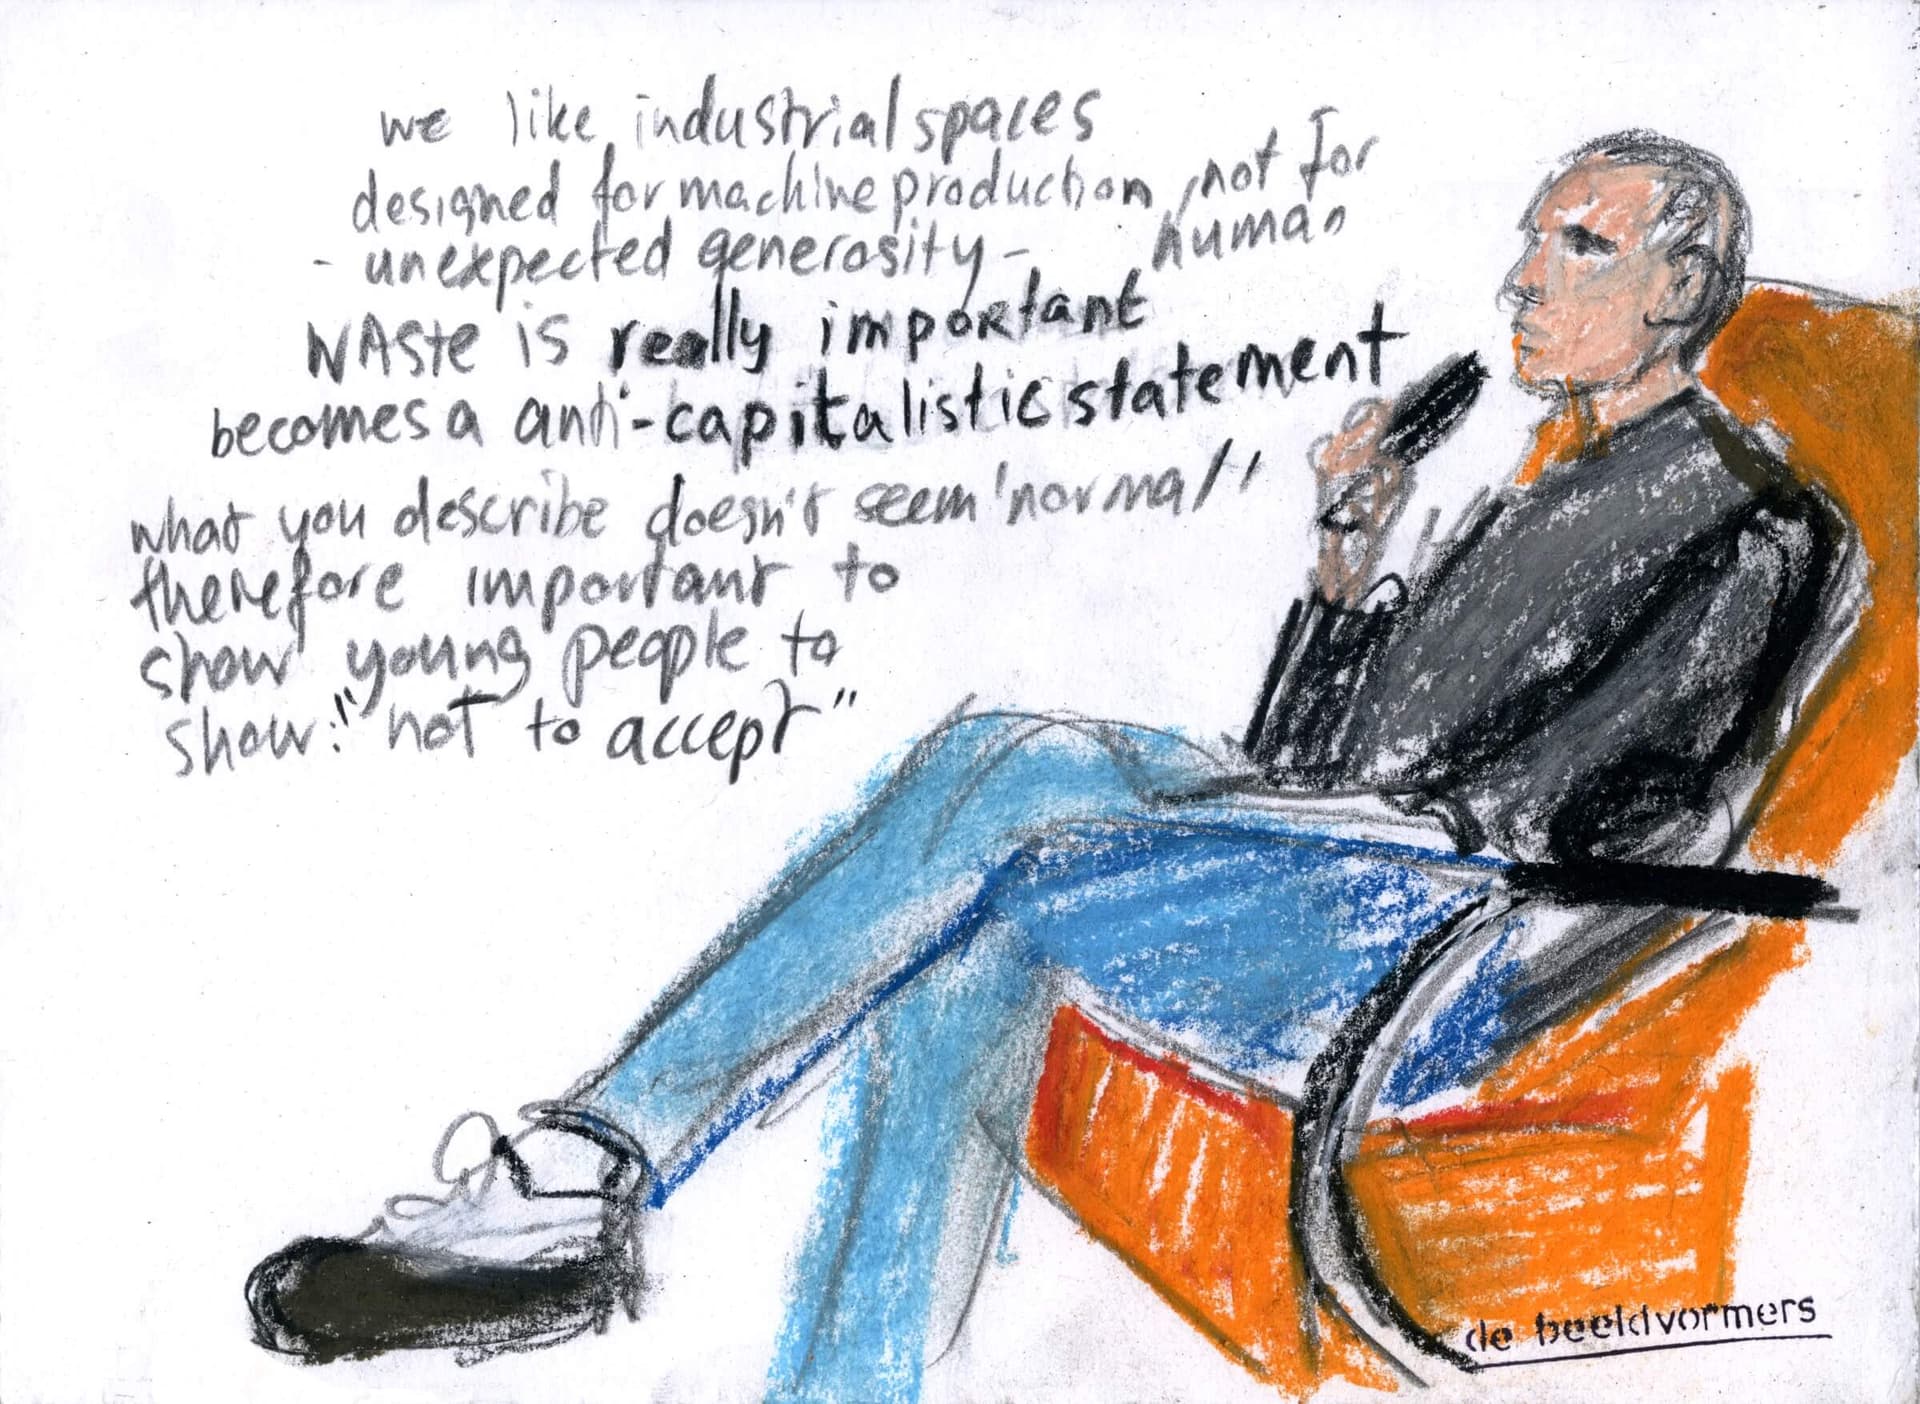 we like industrial spaces
designed for machine production, not for
human
- unexpected generosity -
WASte is really important
becomes a anti-capitalistic statement
what you describe doesn't seem 'normal'
therefore important to
show young people to
show: "not to accept"
de beeldvormers